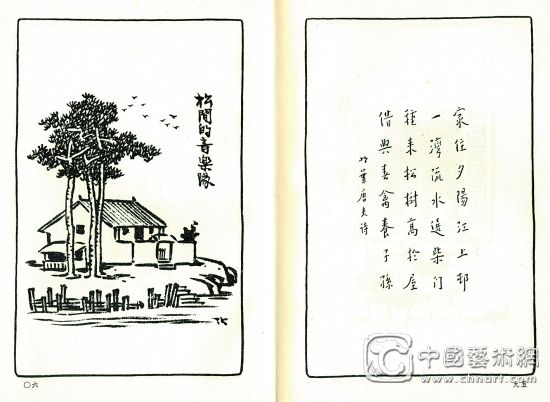 家住夕陽江上邨
一灣流水遶柴门
種来松樹高於屋
借與春禽養子孫
明葉唐夫诗
五九
松間的音樂隊
TK
六〇
中國藝術網
www.chnart.com